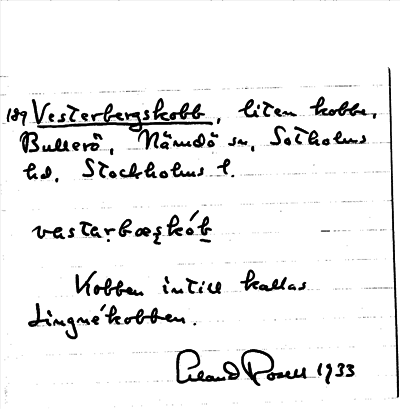 189 Vesterbergskobb, liten kobbe,
Bullerö, Nämdö sn, Sotholms
hd, Stockholms l.
vastarbærskób
Kobben intill kallas
Lingnékobben.
Erland Rosell 1933